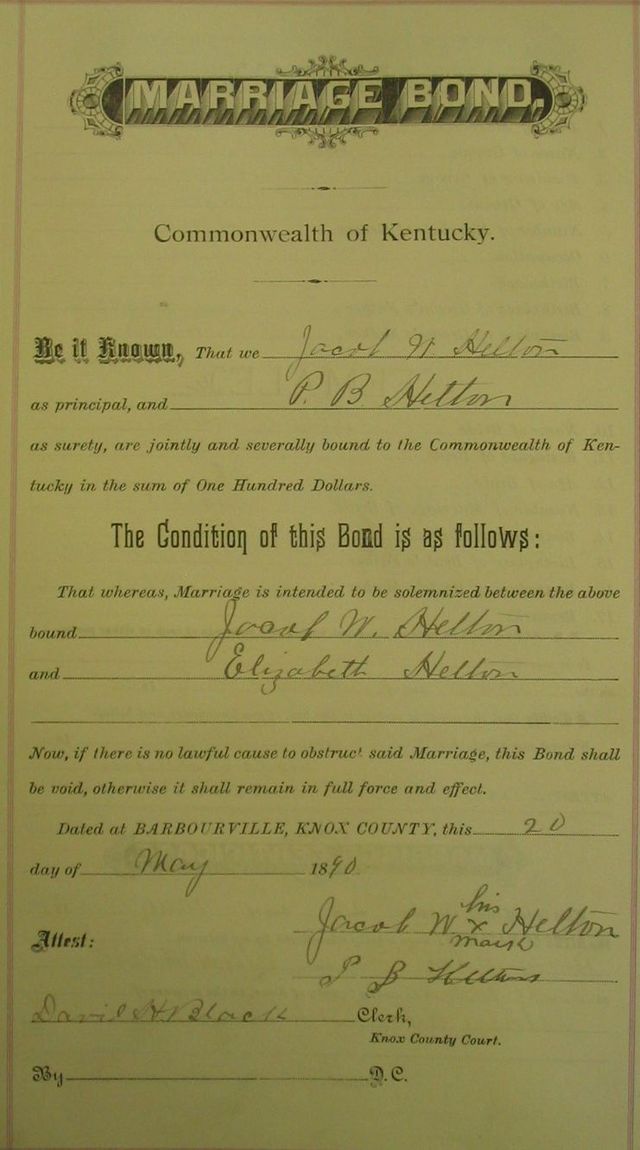 MARRIAGE BOND.
Commonwealth of Kentucky.
Be it Known, That we Jacob W Helton
as principal, and P. B Helton
as surety, are jointly and severally bound to the Commonwealth of Ken-
tucky in the sum of One Hundred Dollars.
The Condition of this Bond is as follows:
That whereas, Marriage is intended to be solemnized between the above
bound Jacob W. Helton
and Elizabeth Helton
Now, if there is no lawful cause to obstruct said Marriage, this Bond shall
be void, otherwise it shall remain in full force and effect.
Dated at BARBOURVILLE, KNOX COUNTY, this 20
day of May 1890
his
Jacob W x Helton
mark
Attest:
P B Helton
David H. Black Clerk,
Knox County Court.
By D. C.